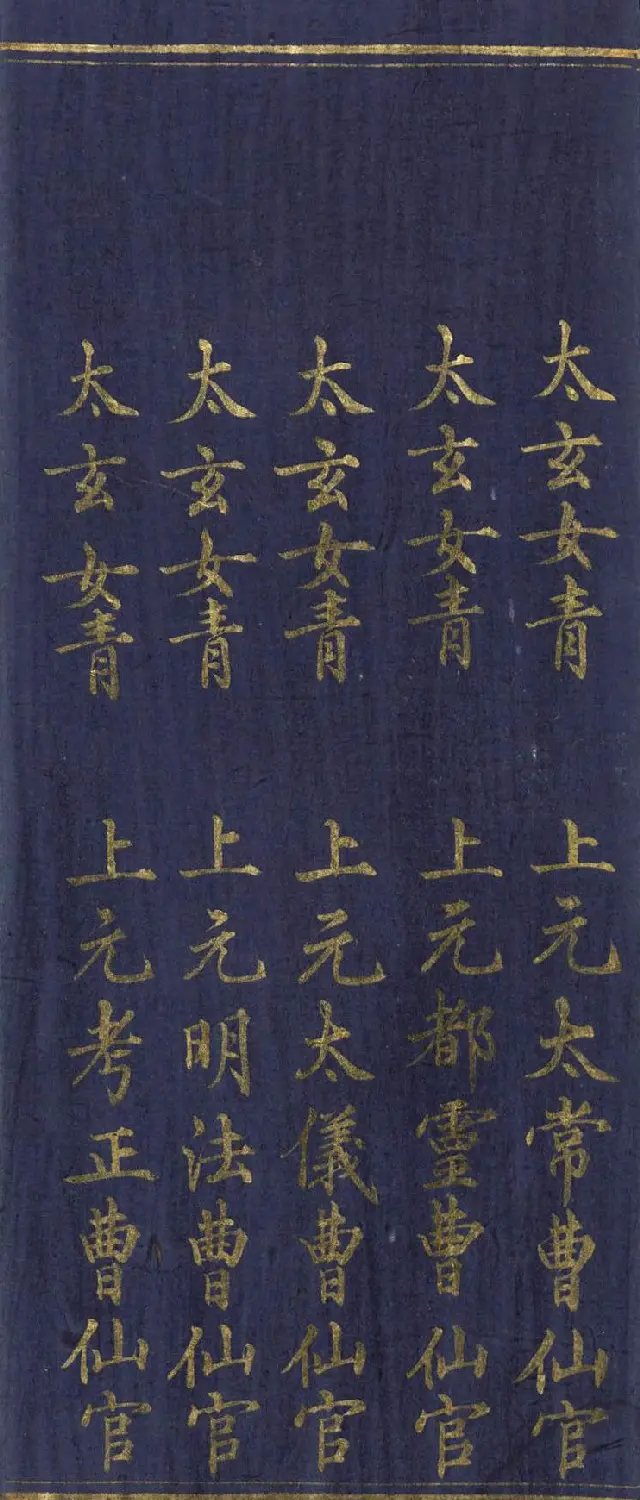 太玄女青 上元太常曹仙官
太玄女青 上元都靈曹仙官
太玄女青 上元太儀曹仙官
太玄女青 上元明法曹仙官
太玄女青 上元考正曹仙官